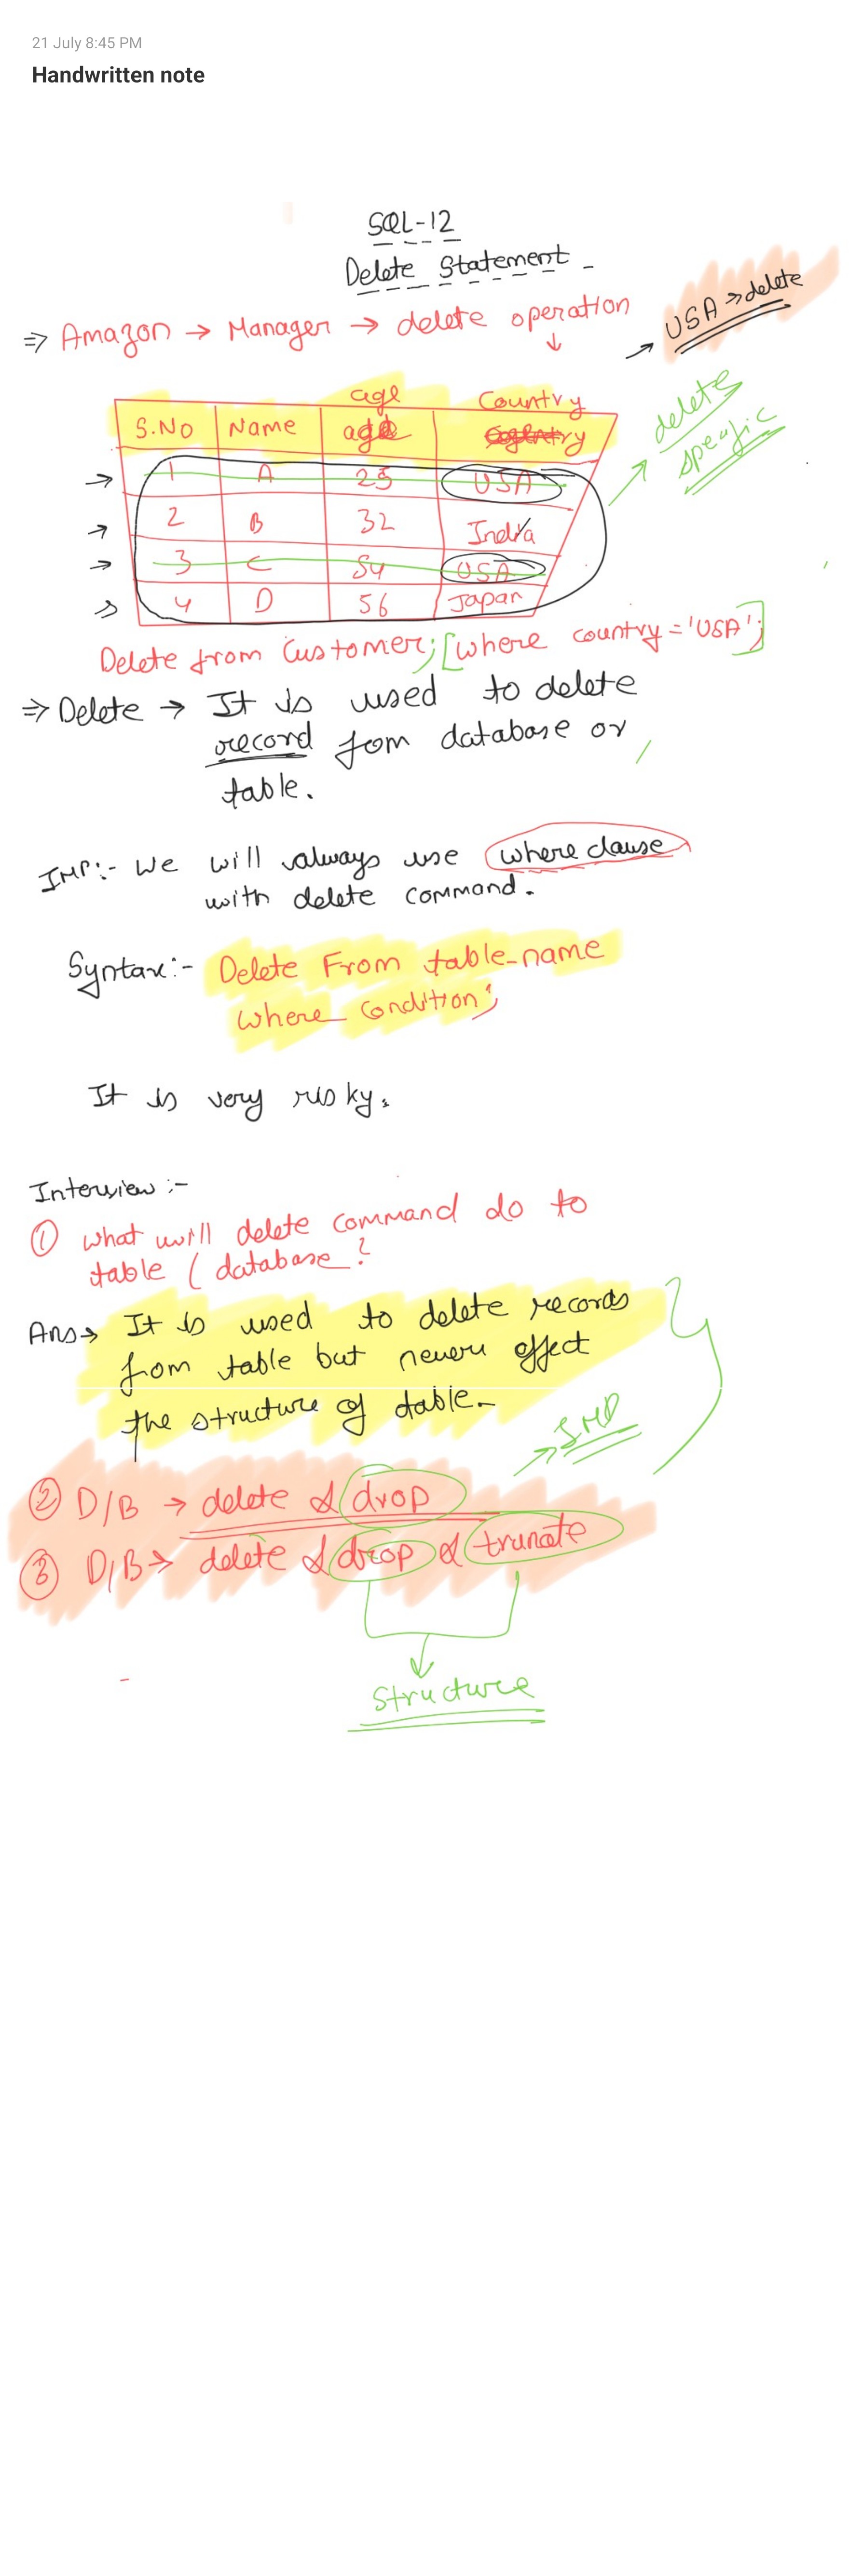 21 July 8:45 PM
Handwritten note
SQL-12
Delete Statement -
⇒ Amazon → Manager → delete operation
→ USA → delete
delete
specific
age Country
S.No Name age
→ 1 A 25 USA
→ 2 B 32 India
→ 3 C 54 USA
→ 4 D 56 Japan
Delete from Customer; [where country = 'USA';]
⇒ Delete → It is used to delete
record fom database or
table.
IMP:- We will always use where clause
with delete command.
Syntax:- Delete From table_name
where condition;
It is very risky.
Interview :-
① What will delete command do to
table ( database ?
Ans → It is used to delete records
from table but never effect
the structure of table.
→ IMP
② D/B → delete & drop
③ D/B → delete & drop & trunate
Structure